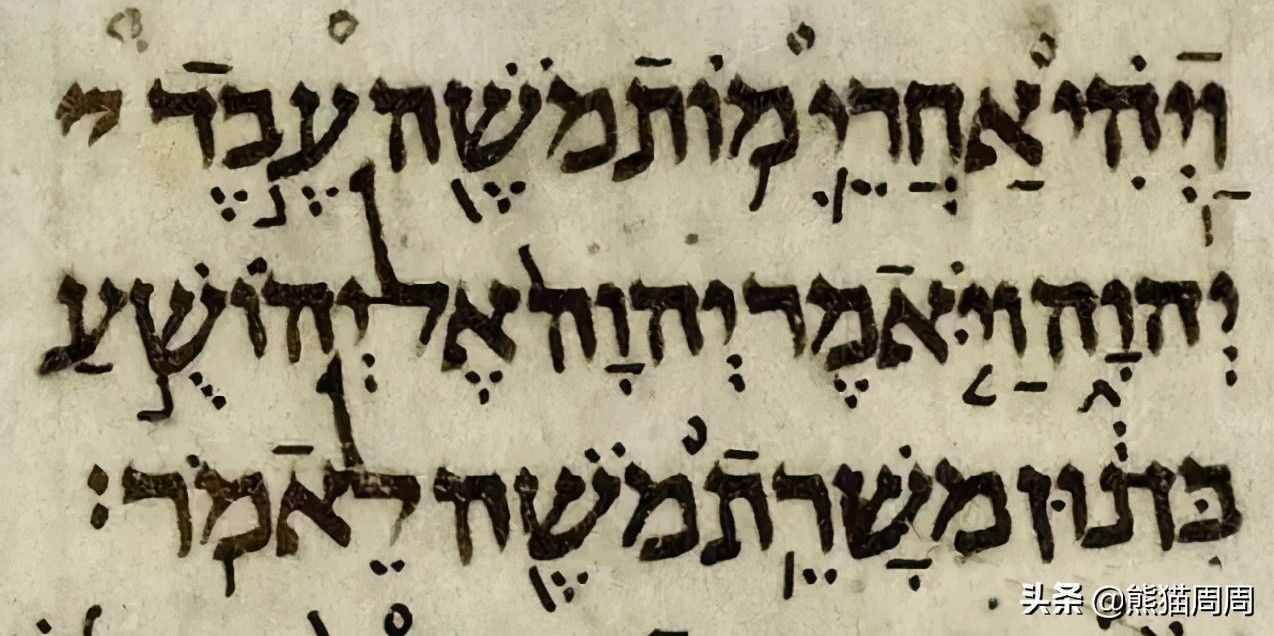 וַיְהִ֗י אַחֲרֵ֛י מ֥וֹת מֹשֶׁ֖ה עֶ֣בֶד י
יְהוָ֑ה וַיֹּ֤אמֶר יְהוָה֙ אֶל יְהוֹשֻׁ֣עַ
בִּן נ֔וּן מְשָׁרֵ֥ת מֹשֶׁ֖ה לֵאמֹֽר׃
头条 @熊猫周周